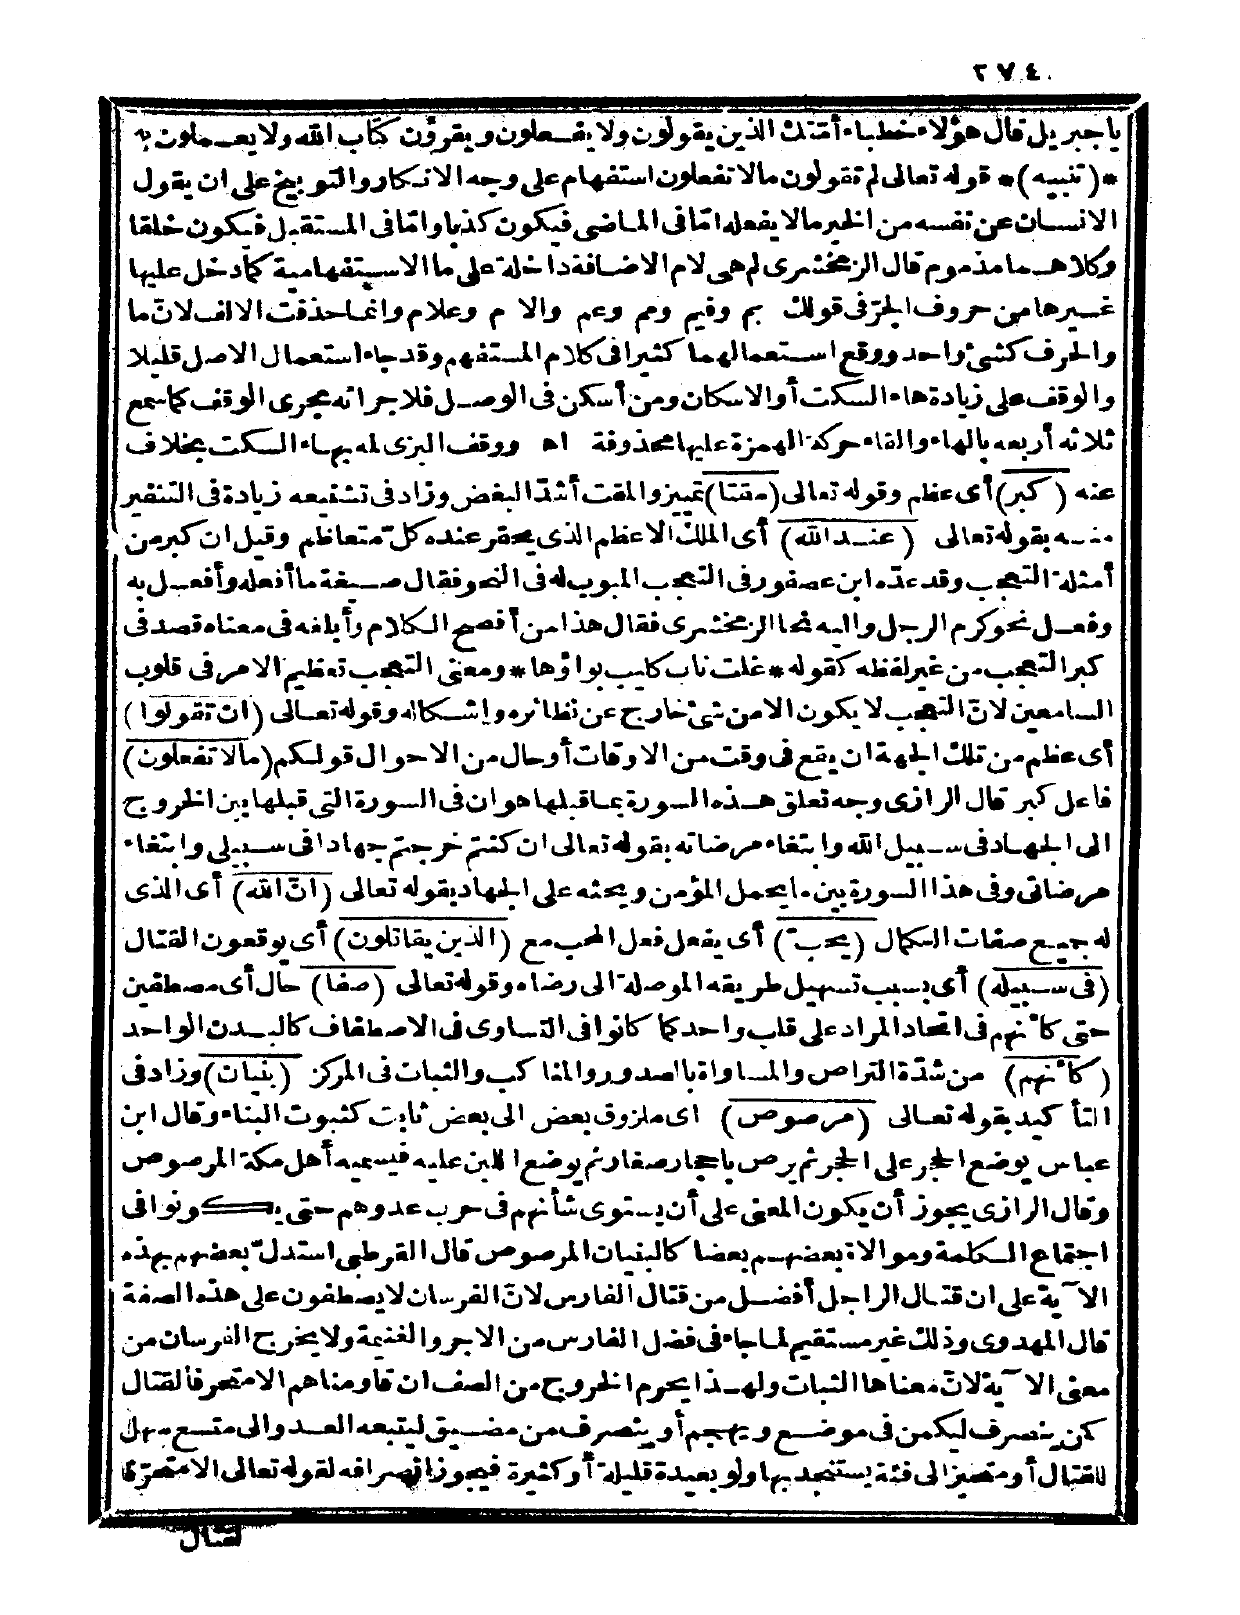 ٢٧٤
ياجبريل قال هؤلاء خطباء أمتك الذين يقولون ولا يفعلون ويقرؤن كتاب الله ولا يعملون به
*(تنبيه)* قوله تعالى لم تقولون مالا تفعلون استفهام على وجه الانكار والتوبيخ على ان يقول
الانسان عن نفسه من الخير مالا يفعله امّا فى الماضى فيكون كذبا وامّا فى المستقبل فيكون خلفا
وكلاهما مذموم قال الزمخشرى لم هى لام الاضافة داخلة على ما الاستفهامية كما دخل عليها
غيرها من حروف الجرّ فى قولك بم وفيم ومم وعم والام وعلام وانما حذفت الالف لانّ ما
والحرف كشئ واحد ووقع استعمالهما كثيرا فى كلام المستفهم وقد جاء استعمال الاصل قليلا
والوقف على زيادة هاء السكت أو الاسكان ومن أسكن فى الوصل فلاجرائه مجرى الوقف كما سمع
ثلاثه أربعه بالهاء والقاء حركة الهمزة عليها محذوفة اه ووقف البزى لمه بهاء السكت بخلاف
عنه (كبر) أى عظم وقوله تعالى (مقتا) تمييز والمقت أشدّ البغض وزاد فى تشنيعه زيادة فى التنفير
منه بقوله تعالى (عند الله) أى الملك الاعظم الذى يحقر عنده كلّ متعاظم وقيل ان كبر من
أمثلة التعجب وقد عدّه ابن عصفور فى التعجب المبوب له فى النحو فقال صيغة ما أفعله وأفعل به
وفعل نحو كرم الرجل واليه نحا الزمخشرى فقال هذا من أفصح الكلام وأبلغه فى معناه قصد فى
كبر التعجب من غير لفظه كقوله *غلت ناب كليب بواؤها* ومعنى التعجب تعظيم الامر فى قلوب
السامعين لانّ التعجب لا يكون الا من شئ خارج عن نظائره واشكاله وقوله تعالى (ان تقولوا)
أى عظم من تلك الجهة ان يقع فى وقت من الاوقات أو حال من الاحوال قولكم (مالا تفعلون)
فاعل كبر قال الرازى وجه تعلق هذه السورة بما قبلها هو ان فى السورة التى قبلها بين الخروج
الى الجهاد فى سبيل الله وابتغاء مرضاته بقوله تعالى ان كنتم خرجتم جهادا فى سبيلى وابتغاء
مرضاتى وفى هذا السورة بين ما يحمل المؤمن ويحثه على الجهاد بقوله تعالى (انّ الله) أى الذى
له جميع صفات الكمال (يحبّ) أى يفعل فعل المحب مع (الذين يقاتلون) أى يوقعون القتال
(فى سبيله) أى بسبب تسهيل طريقه الموصلة الى رضاه وقوله تعالى (صفا) حال أى مصطفين
حتى كأنهم فى اتحاد المراد على قلب واحد كما كانوا فى التساوى فى الاصطفاف كالبدن الواحد
(كأنهم) من شدّة التراص والمساواة بالصدور والمناكب والثبات فى المركز (بنيان) وزاد فى
التأكيد بقوله تعالى (مرصوص) اى ملزوق بعض الى بعض ثابت كثبوت البناء وقال ابن
عباس يوضع الحجر على الحجر ثم يرص باحجار صغار ثم يوضع اللبن عليه فيسميه أهل مكة المرصوص
وقال الرازى يجوز أن يكون المعنى على أن يستوى شأنهم فى حرب عدوهم حتى يكونوا فى
اجتماع الكلمة وموالاة بعضهم بعضا كالبنيان المرصوص قال القرطبى استدلّ بعضهم بهذه
الآية على ان قتال الراجل أفضل من قتال الفارس لانّ الفرسان لا يصطفون على هذه الصفة
قال المهدوى وذلك غير مستقيم لما جاء فى فضل الفارس من الاجر والغنيمة ولا يخرج الفرسان من
معنى الآية لانّ معناها الثبات ولهذا يحرم الخروج من الصف ان قاومناهم الا متحرفا لقتال
كمن ينصرف ليكمن فى موضع ويهجم أو ينصرف من مضيق ليتبعه العدو الى متسع سهل
للقتال أو متحيزا الى فئة يستنجد بها ولو بعيدة قليلة أو كثيرة فيجوز انصرافه لقوله تعالى الا متحرّفا
لقتال